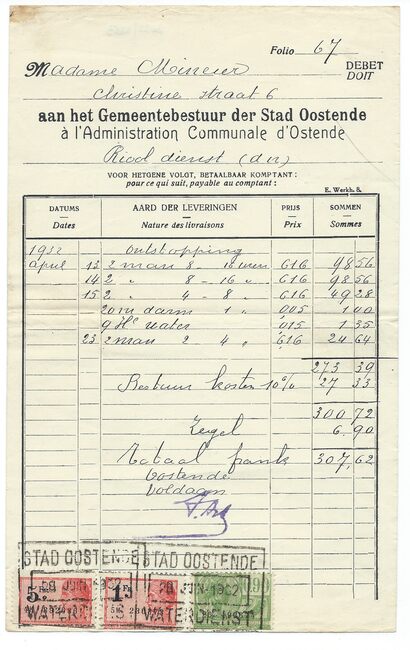 Folio 67
Madame Mineur DEBET
DOIT
Christine straat 6
aan het Gemeentebestuur der Stad Oostende
à l'Administration Communale d'Ostende
Riool dienst
VOOR HETGENE VOLGT, BETAALBAAR KOMPTANT :
pour ce qui suit, payable au comptant :
E. Werkh. 8.
DATUMS AARD DER LEVERINGEN PRIJS SOMMEN
Dates Nature des livraisons Prix Sommes
1952 Ontstopping
April 13 2 man 8 - 16 uren 616 98 56
14 2 " 8 - 16 " 616 98 56
15 2 " 4 - 8 " 616 49 28
20 m darm 1 " 005 1 00
9 Hl water 015 1 35
23 2 man 2 - 4 " 616 24 64
273 39
Bestuur kosten 10% 27 33
300 72
Zegel 6.90
Totaal frank 307,62
Oostende
Voldaan
STAD OOSTENDE STAD OOSTENDE
5 Fr 1 Fr
WATERDIENST